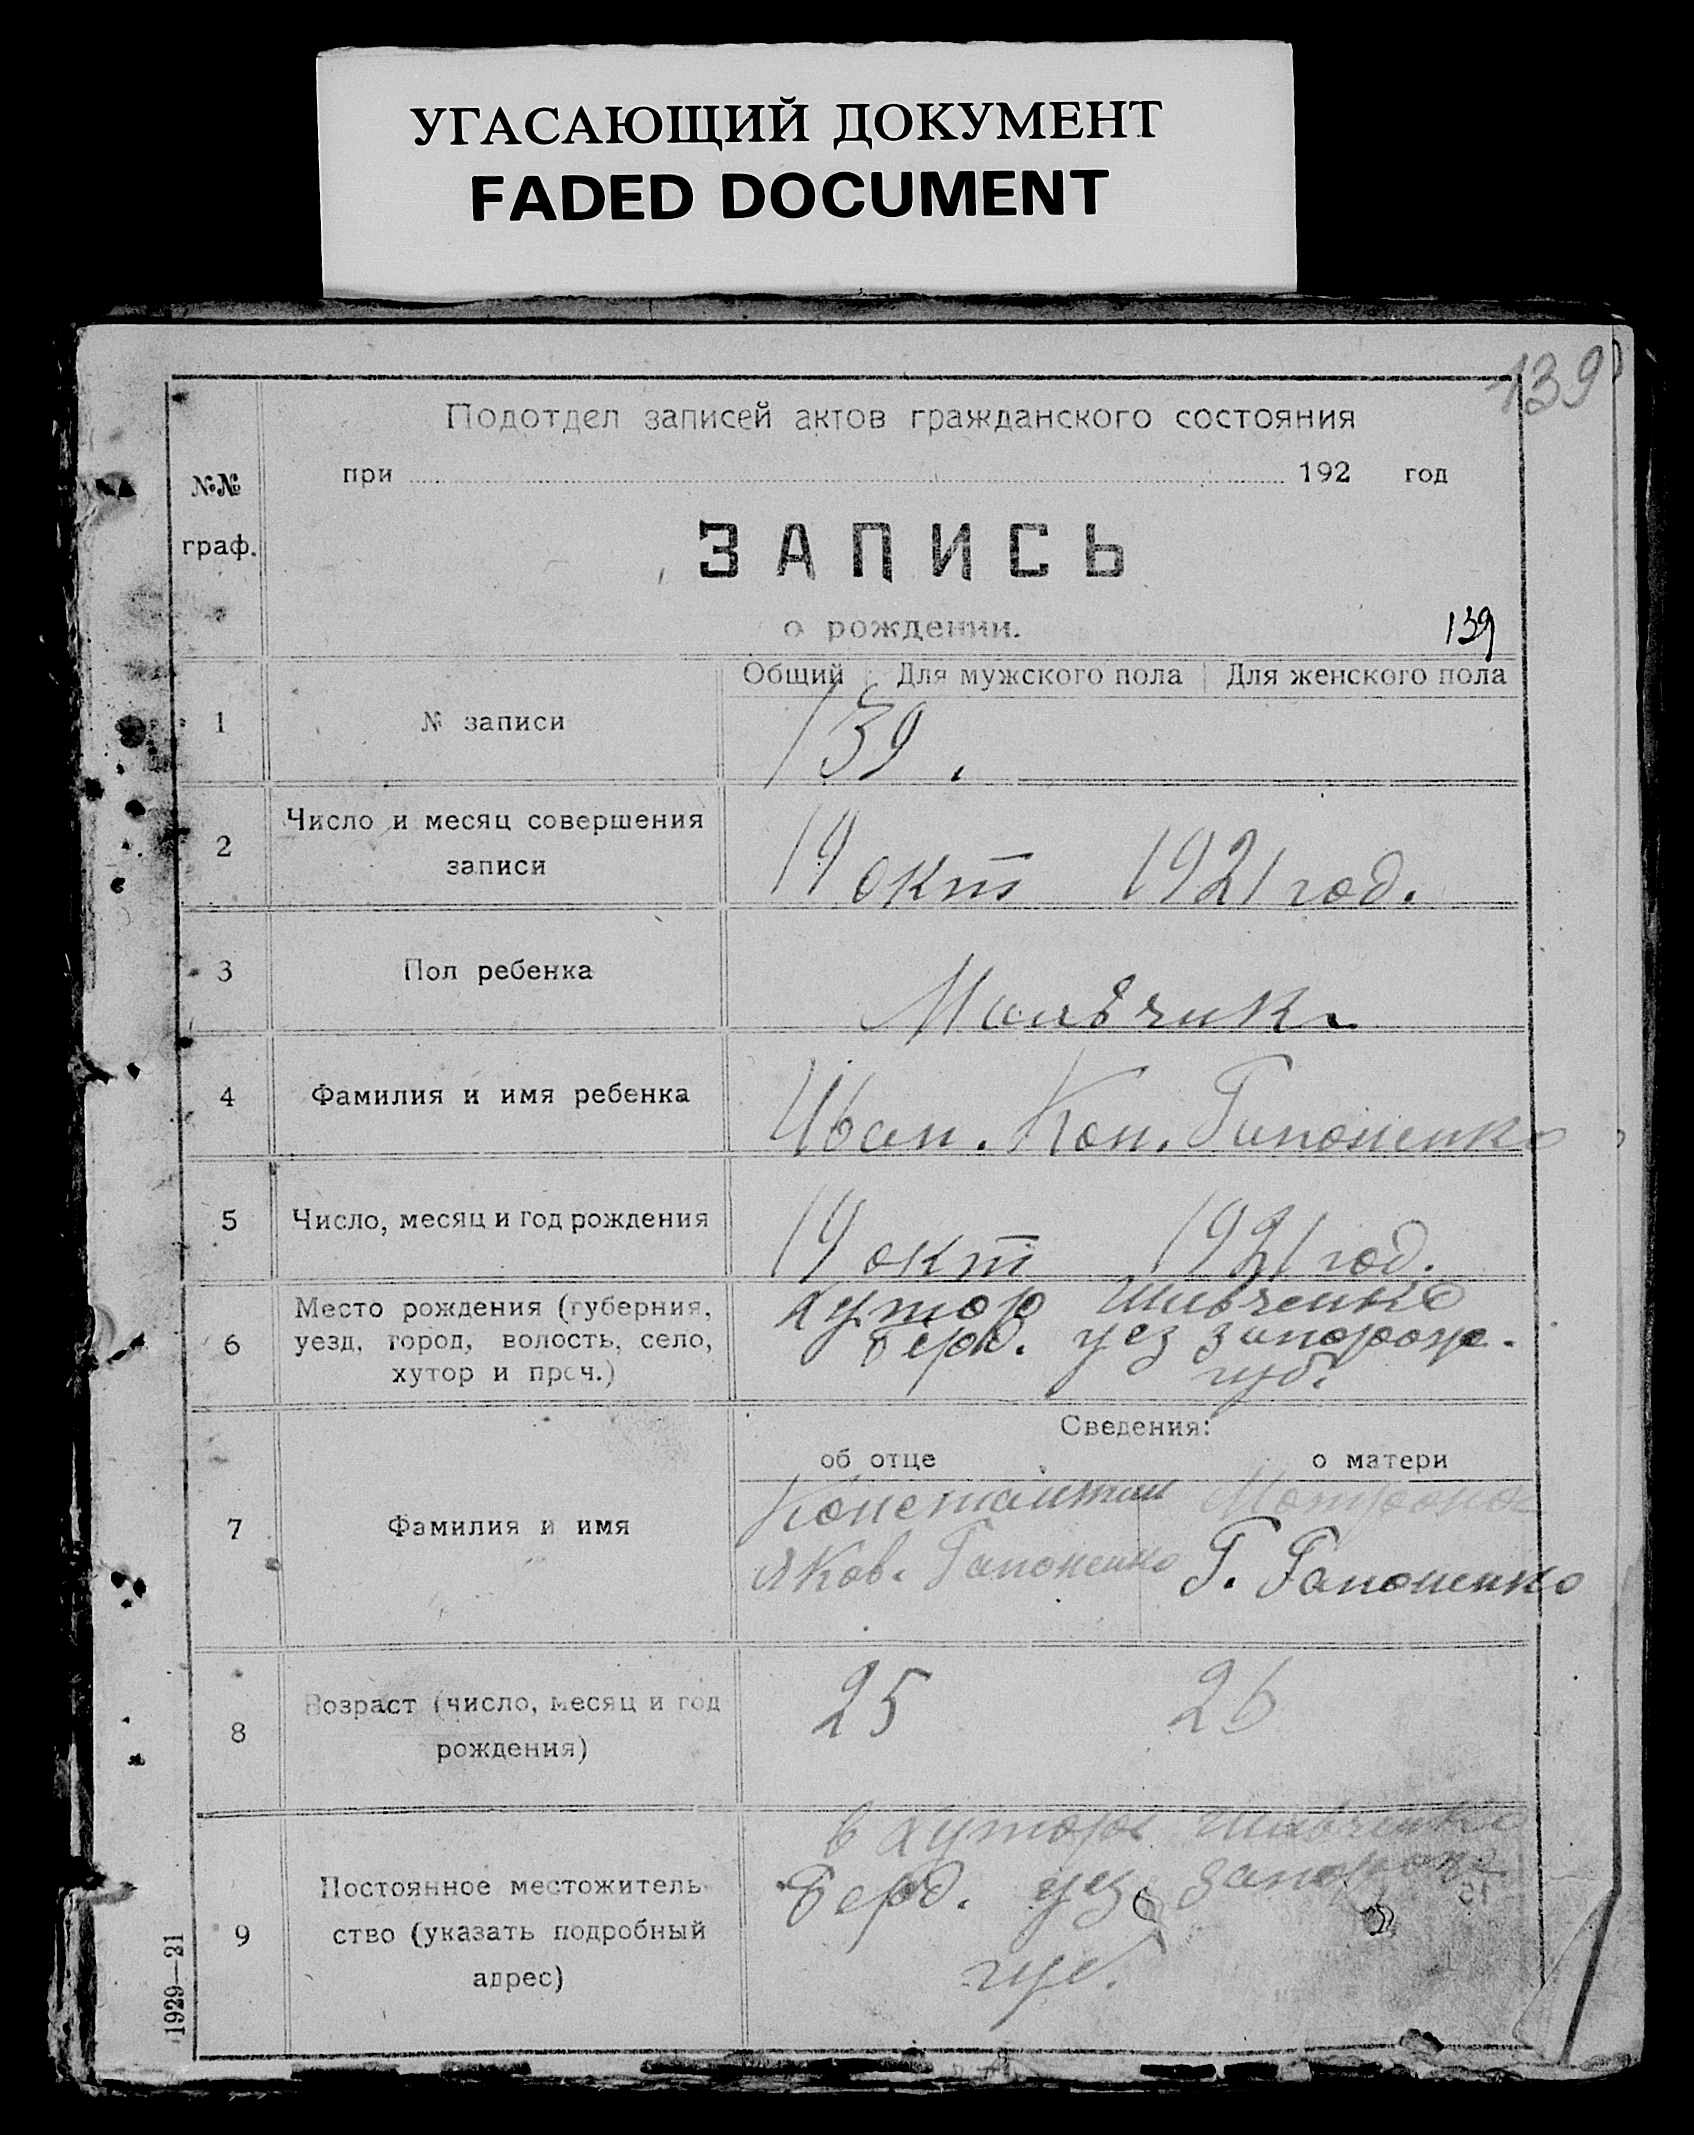 УГАСАЮЩИЙ ДОКУМЕНТ
FADED DOCUMENT
139
Подотдел записей актов гражданского состояния
при 192 год
№№
граф.
ЗАПИСЬ
о рождении.
139
Общий Для мужского пола Для женского пола
1 № записи 139.
2 Число и месяц совершения
записи
19 окт 1921 год.
3 Пол ребенка Мальчик.
4 Фамилия и имя ребенка Иван. Кон. Гапоненко
5 Число, месяц и год рождения 19 окт 1921 год.
6 Место рождения (губерния,
уезд, город, волость, село,
хутор и проч.)
хутор Шевченко
Берд. уез запорож.
губ.
Сведения:
об отце о матери
7 Фамилия и имя
Константин Матрона
Яков. Гапоненко Г. Гапоненко
8 Возраст (число, месяц и год
рождения)
25 26
9 Постоянное местожитель-
ство (указать подробный
адрес)
в хуторе Шевченко
Берд. уез. запорож
губ.
1929—21